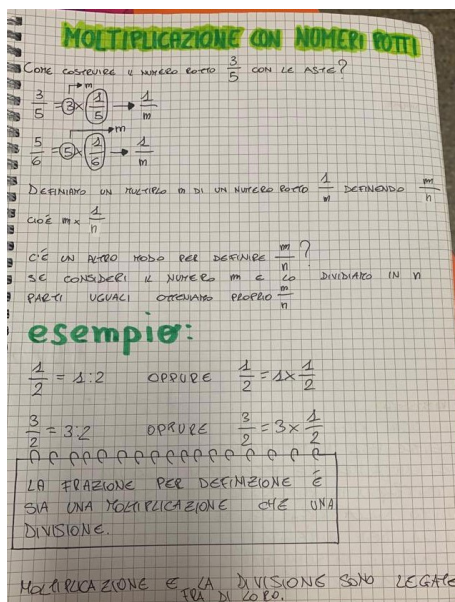 MOLTIPLICAZIONE CON NUMERI ROTTI
COME COSTRUIRE IL NUMERO ROTTO 3/5 CON LE ASTE?
3/5 = 3 × 1/5 → 1/m
m
5/6 = 5 × 1/6 → 1/m
m
DEFINIAMO UN MULTIPLO m DI UN NUMERO ROTTO 1/n DEFINENDO m/n
CIOÉ m × 1/n
C'É UN ALTRO MODO PER DEFINIRE m/n?
SE CONSIDERI IL NUMERO m E LO DIVIDIAMO IN n
PARTI UGUALI OTTENIAMO PROPRIO m/n
esempio:
1/2 = 1:2 OPPURE 1/2 = 1 × 1/2
3/2 = 3:2 OPPURE 3/2 = 3 × 1/2
LA FRAZIONE PER DEFINIZIONE É
SIA UNA MOLTIPLICAZIONE CHE UNA
DIVISIONE.
MOLTIPLICAZIONE E LA DIVISIONE SONO LEGATE
FRA DI LORO.